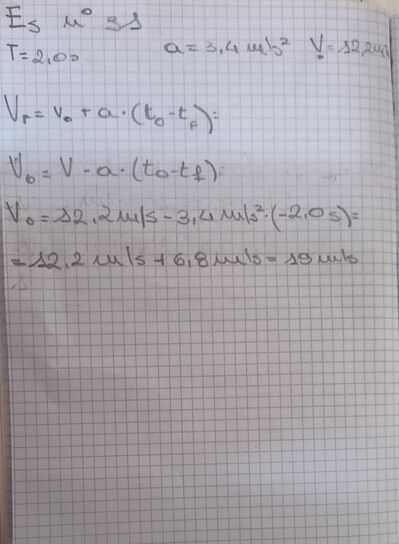 Es n° 31
T = 2,0s a = 3,4 m/s² V = 12,2 m/s
V_F = v₀ + a · (t₀ - t_F) =
V₀ = V - a · (t₀ - t_f) =
V₀ = 12,2 m/s - 3,4 m/s² · (-2,0s) =
= 12,2 m/s + 6,8 m/s = 19 m/s